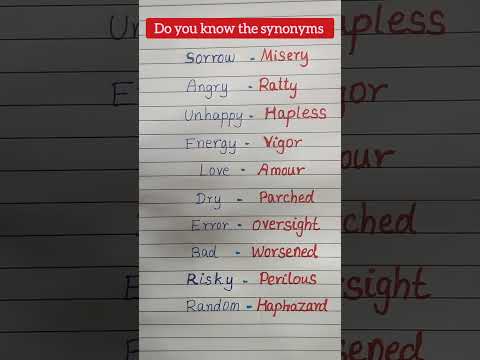 Do you know the synonyms
Sorrow - Misery
Angry - Ratty
Unhappy - Hapless
Energy - Vigor
Love - Amour
Dry - Parched
Error - oversight
Bad - Worsened
Risky - Perilous
Random - Haphazard